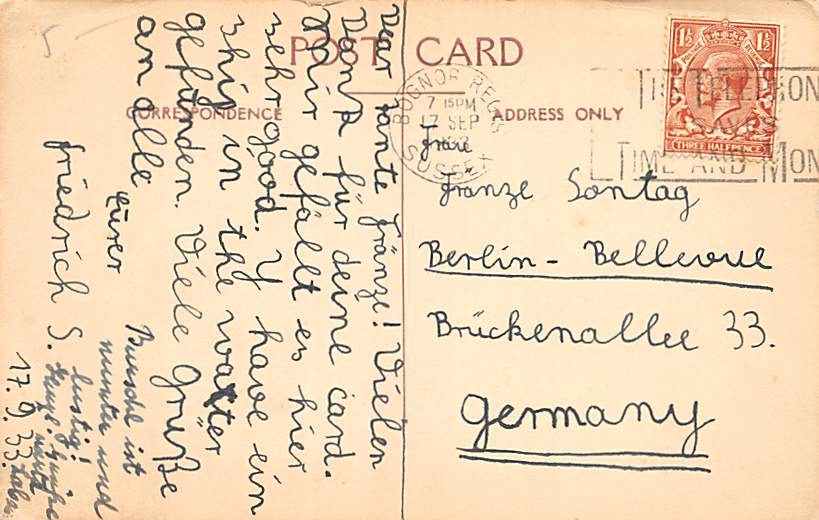 POST CARD
CORRESPONDENCE
ADDRESS ONLY
Dear Tante Fränze! Vielen
Dank für deine card.
Mir gefällt es hier
sehr good. Y have ein
ship in the water
gefunden. Viele Grüße
an alle
Eurer
Friedrich S.
17.9.33.
Burschi ist
munter und
lustig!
BOGNOR REGIS
7 15PM
17 SEP
SUSSEX
THE TELEPHON
TIME AND MON
1½ 1½
THREE HALFPENCE
Frau
Fränze Sontag
Berlin - Bellevue
Brückenallee 33.
Germany